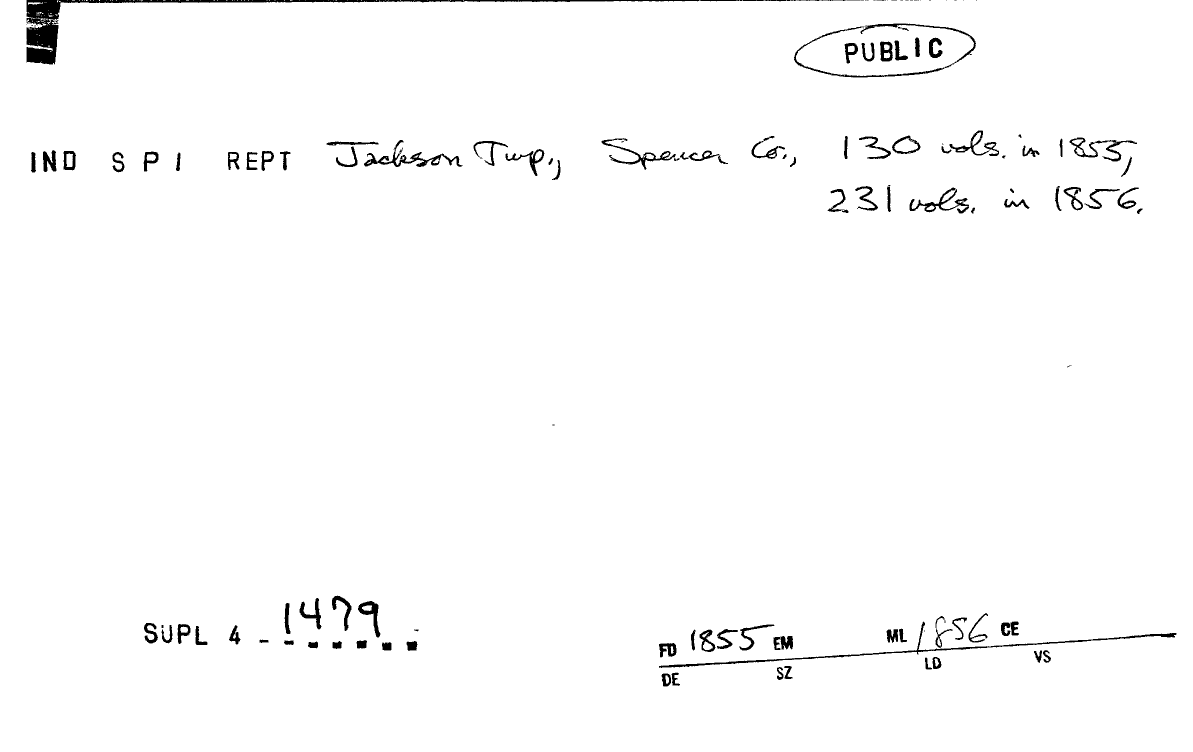 PUBLIC
IND S P I REPT Jackson Twp., Spencer Co., 130 vols. in 1855,
231 vols. in 1856.
SUPL 4 - 1479
FD 1855 EM ML 1856 CE
DE SZ LD VS